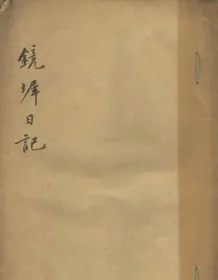 鏡墀日記